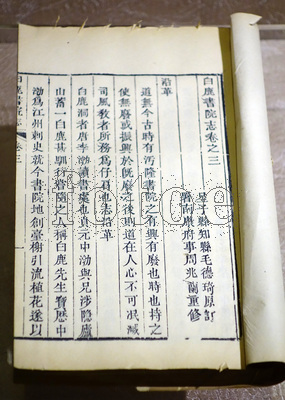 白鹿書院志卷之三
星子縣知縣毛德琦原訂
南康府事周兆蘭重修
沿革
道無今古時有汚隆書院之有興有廢也時也持之
使無廢或振興於既廢之後則道在人心不可泯滅
司風教者所務爲仔肩也志沿革
白鹿洞者唐李渤讀書處也貞元中渤與兄涉隱廬
山蓄一白鹿甚馴行常隨之人稱白鹿先生寶歷中
渤爲江州刺史就今書院地創臺榭引流植花遂以
白鹿書院志 卷三